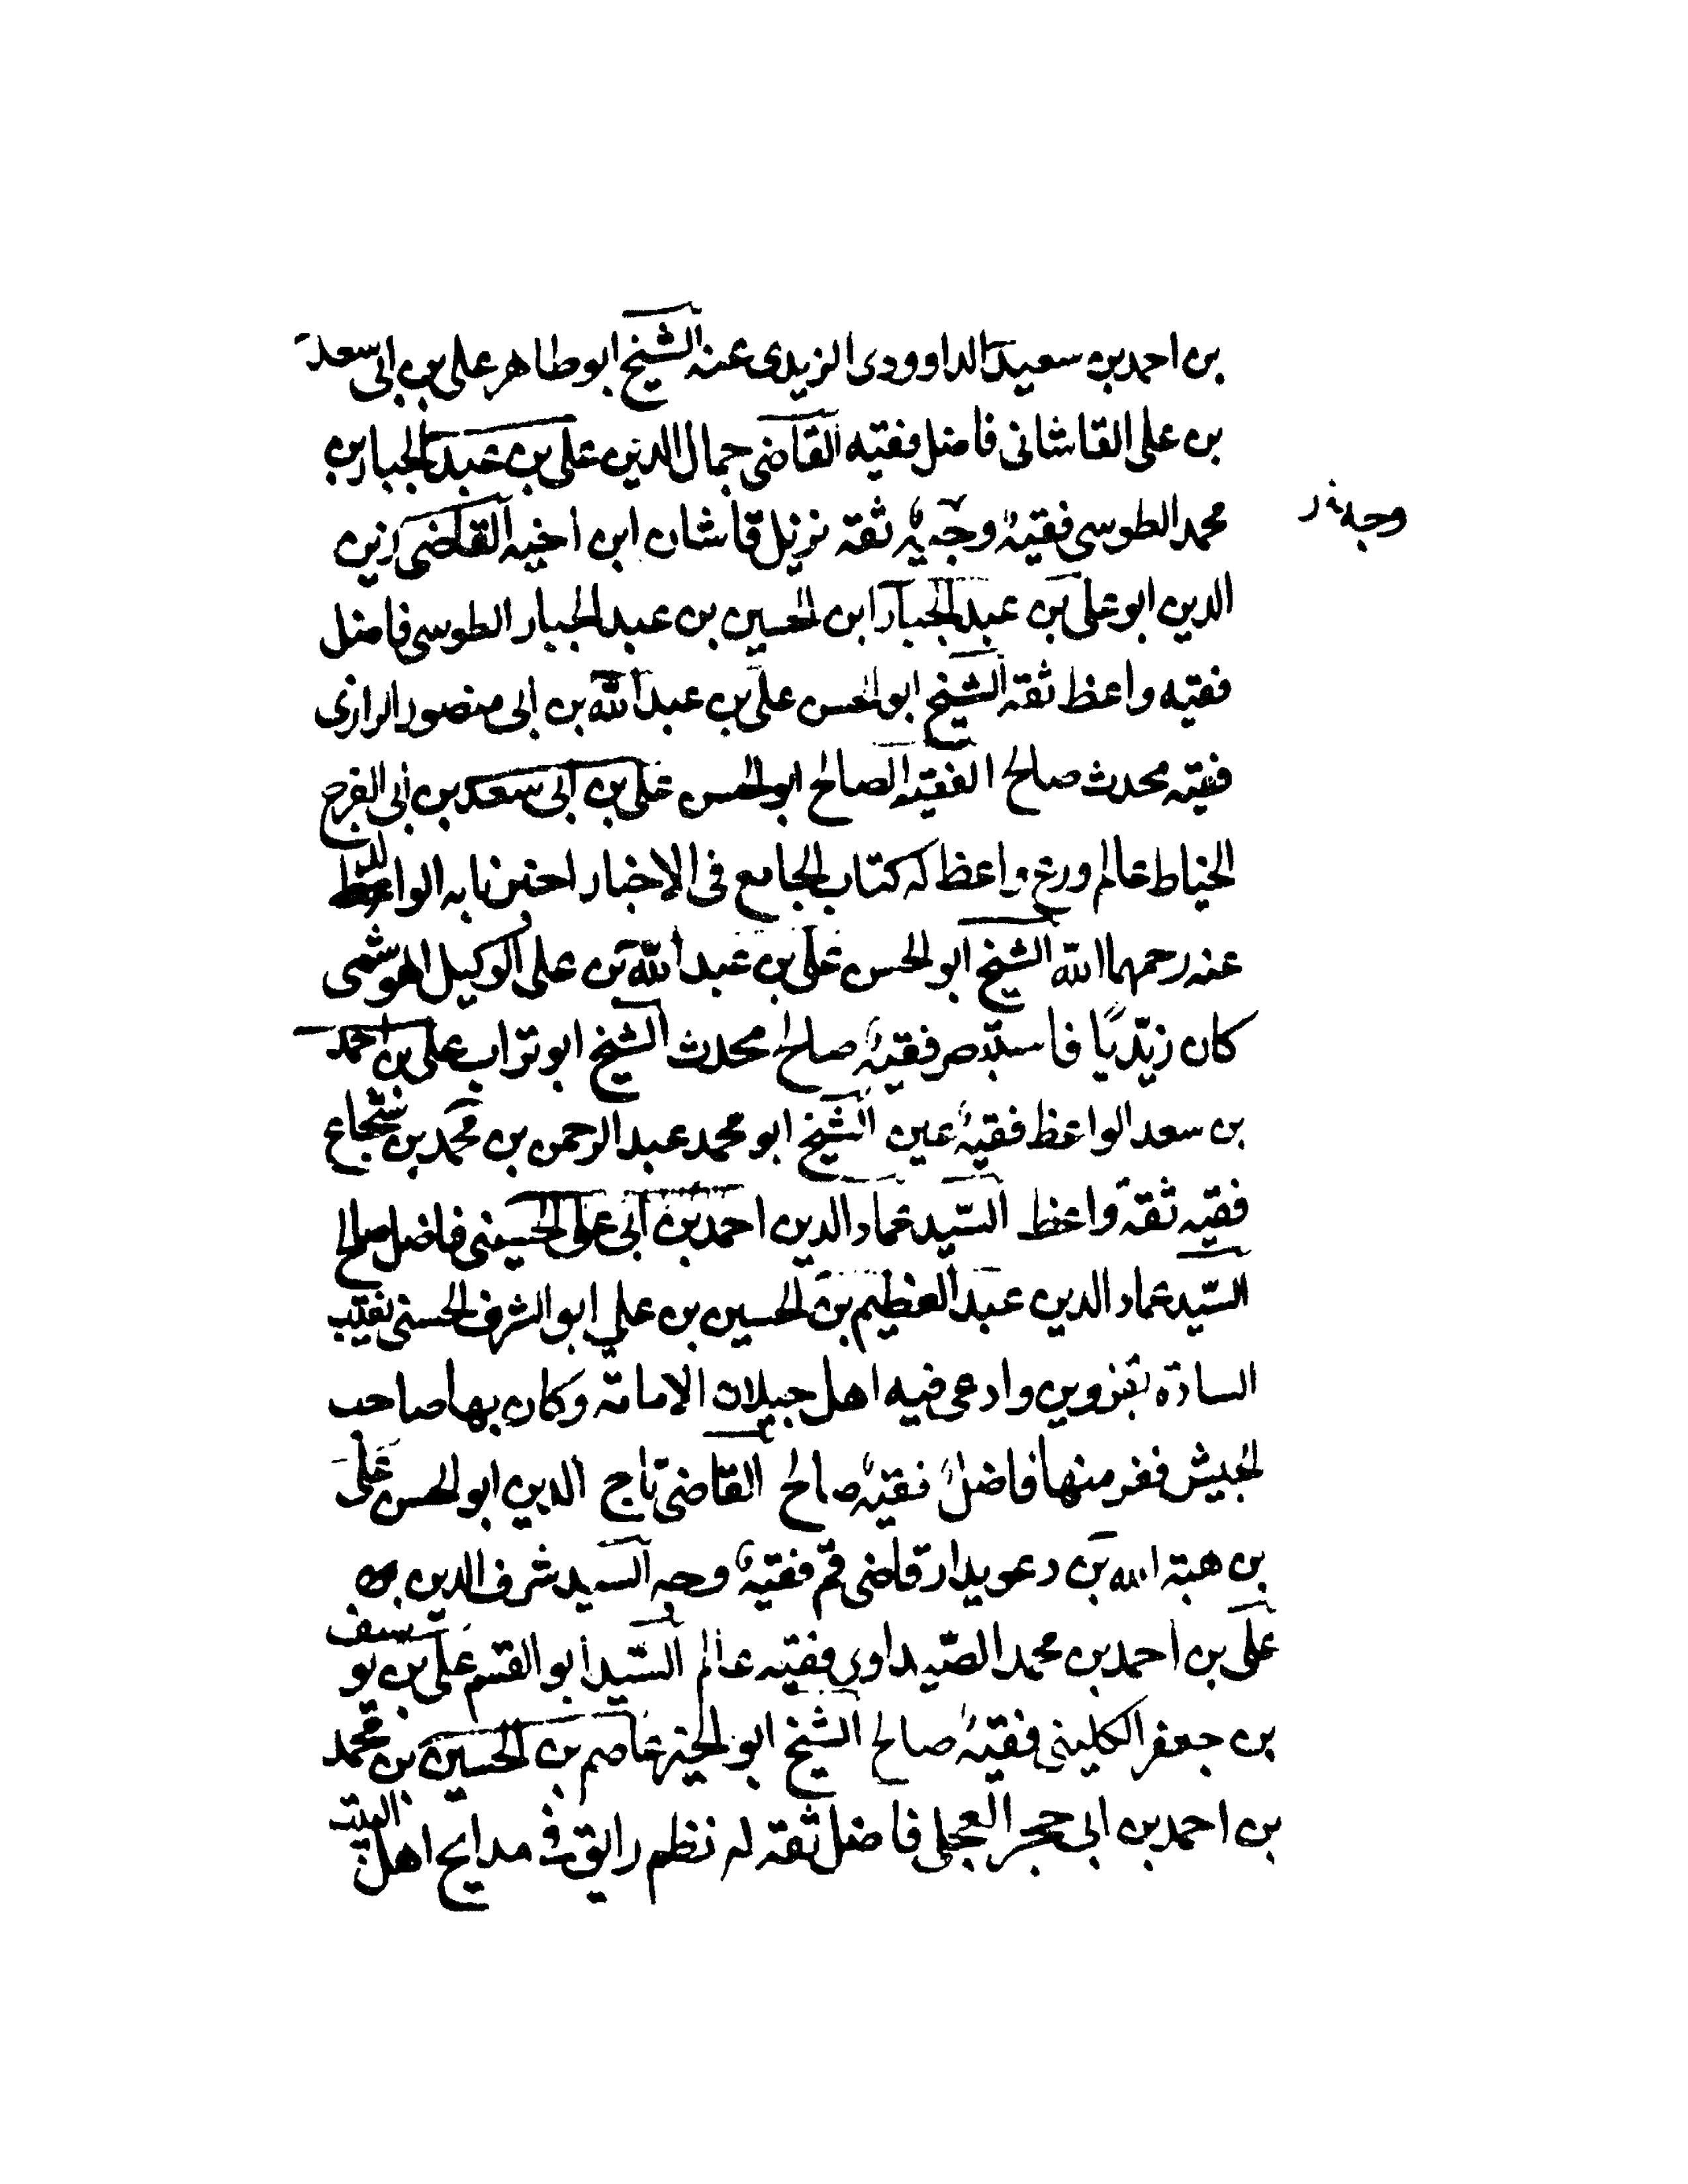 بن احمد بن سعيد الداوودى الزيدى عنه الشيخ ابو طاهر على بن ابى سعد
بن على القاشانى فاضل فقيه القاضى جمال الدين على بن عبد الجبار بن
محمد الطوسى فقيه وجيه ثقة نزيل قاشان ابن اخيه القاضى زين
وجه
الدين ابو على بن عبد الجبار ابن الحسين بن عبد الجبار الطوسى فاضل
فقيه واعظ ثقة الشيخ ابو الحسن على بن عبد الله بن ابى منصور الرازى
فقيه محدث صالح الفقيه الصالح ابو الحسن على بن ابى سعد بن ابى الفرج
الخياط عالم ورع واعظ له كتاب الجامع فى الاخبار اخبرنا به الوالد
عنه رحمهما الله الشيخ ابو الحسن على بن عبد الله بن على الوكيل الهوشمى
كان زيديا فاستبصر فقيه صالح محدث الشيخ ابو تراب على بن احمد
بن سعد الواعظ فقيه عين الشيخ ابو محمد عبد الرحمن بن محمد بن شجاع
فقيه ثقة واعظ السيد عماد الدين احمد بن ابى على الحسينى فاضل صالح
السيد عماد الدين عبد العظيم بن الحسين بن على ابو الشرف الحسنى نقيب
السادة بقزوين وادعى فيه اهل جيلان الامامة وكان بها صاحب
لجيش ففر منها فاضل فقيه صالح القاضى تاج الدين ابو الحسن على
بن هبة الله بن دعويدار قاضى قم فقيه وجه السيد شرف الدين
على بن احمد بن محمد الصيداوى فقيه عالم السيد ابو القسم على بن يوسف
بن جعفر الكلينى فقيه صالح الشيخ ابو الخير عاصم بن الحسين بن محمد
بن احمد بن ابى حجر العجلى فاضل ثقة له نظم رايق فى مدايح اهل البيت